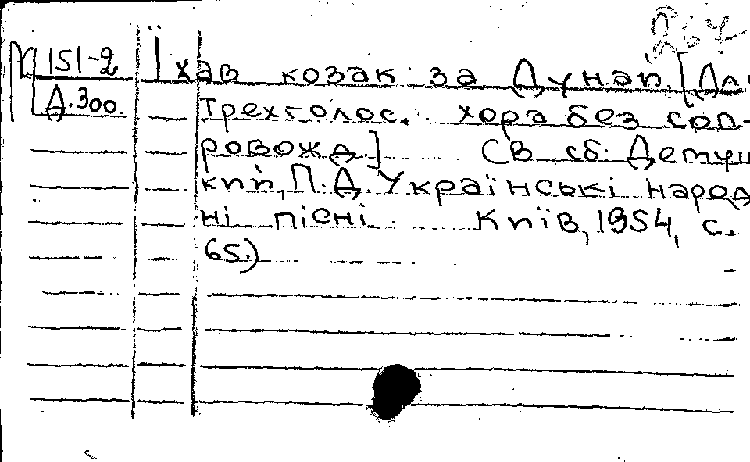 267
М 151-2 Їхав козак за Дунай. [Дл.
Д.300. Трехголос. хора без соп-
ровожд.] (В сб: Детуш
кин, П.Д. Українські народ
ні пісні Київ, 1954, с.
65.)